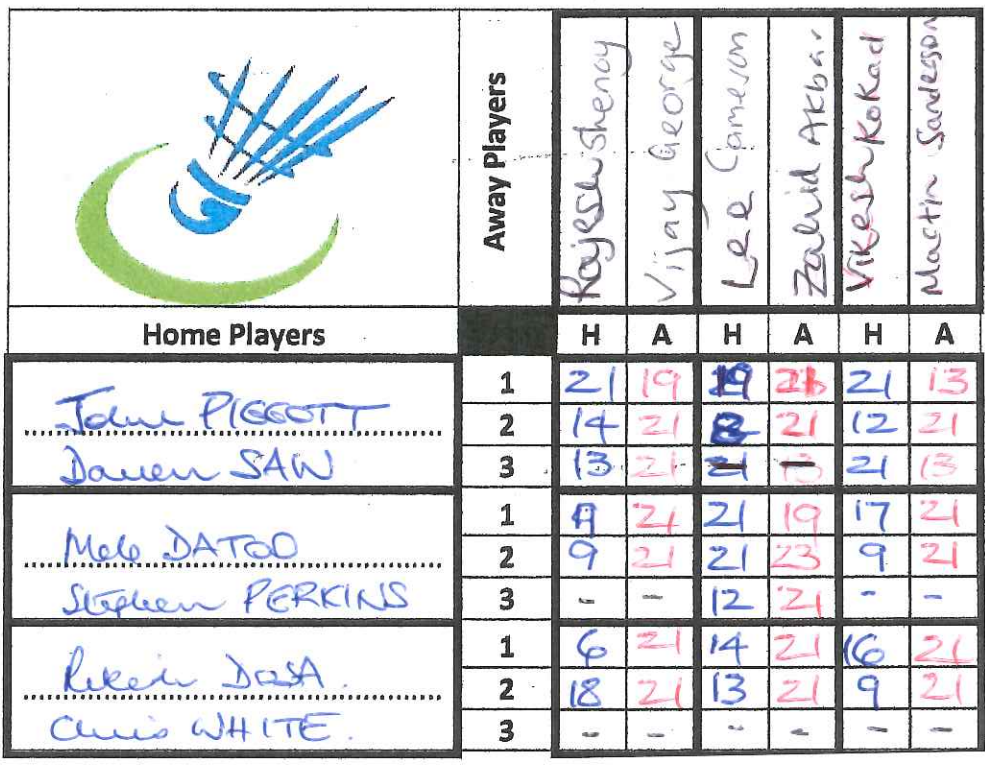 Away Players
Rajesh Shenoy
Vijay George
Lee Cameron
Zahid Akbar
Vikesh Kokad
Martin Sanderson
Home Players H A H A H A
John PIGGOTT
Darren SAW
1 21 19 19 21 21 13
2 14 21 8 21 12 21
3 13 21 21 13
DATOO
Stephen PERKINS
1 21 21 19 17 21
2 9 21 21 23 9 21
3 - - 12 21 - -
DOSA
Chris WHITE.
1 6 21 14 21 16 21
2 18 21 13 21 9 21
3 - - - - - -